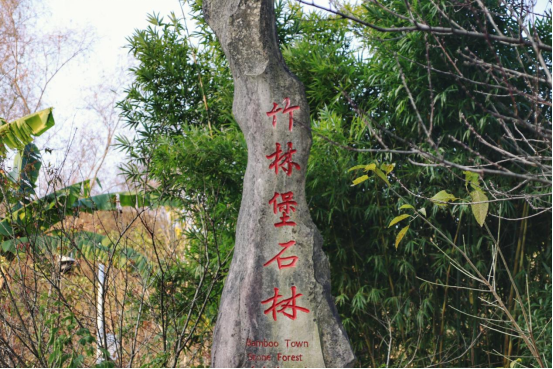 竹林堡石林
Bamboo Town
Stone Forest